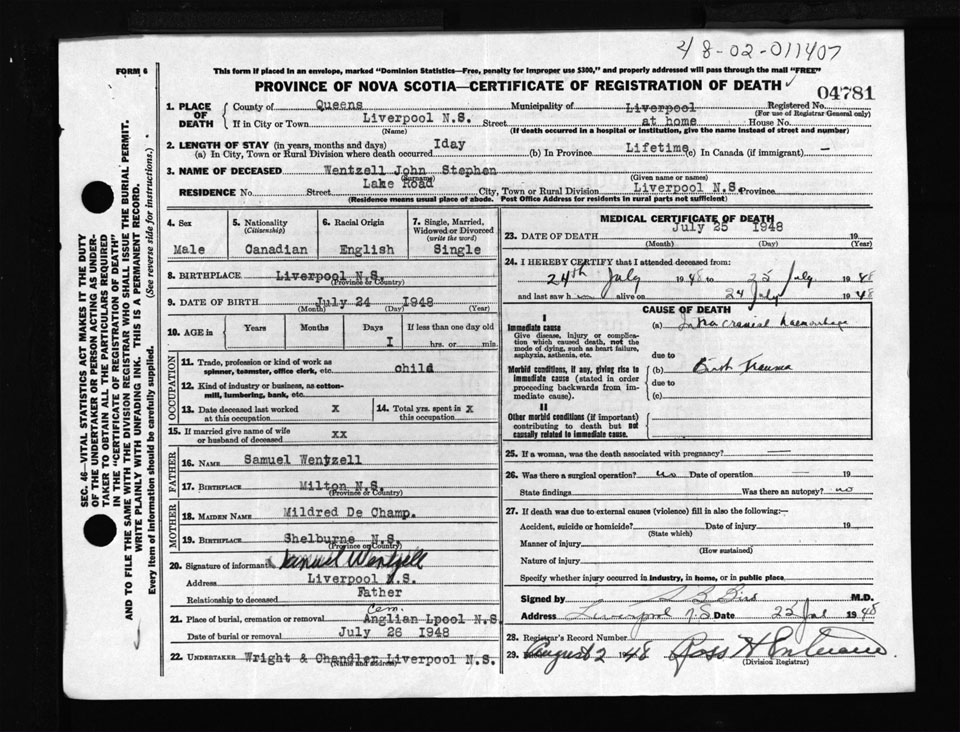 48-02-011407
FORM 6
This form if placed in an envelope, marked "Dominion Statistics—Free, penalty for improper use $300," and properly addressed will pass through the mail "FREE"
PROVINCE OF NOVA SCOTIA—CERTIFICATE OF REGISTRATION OF DEATH
04781
1. PLACE OF DEATH
County of Queens Municipality of Liverpool Registered No.
(For use of Registrar General only)
If in City or Town Liverpool N.S. Street at home House No.
(Name) (If death occurred in a hospital or institution, give the name instead of street and number)
2. LENGTH OF STAY (in years, months and days)
(a) In City, Town or Rural Division where death occurred Iday (b) In Province Lifetime (c) In Canada (if immigrant) —
3. NAME OF DECEASED Wentzell John Stephen
(Surname) (Given name or names)
RESIDENCE No. Street Lake Road City, Town or Rural Division Liverpool N.S. Province
(Residence means usual place of abode. Post Office Address for residents in rural parts not sufficient)
4. Sex
Male
5. Nationality
(Citizenship)
Canadian
6. Racial Origin
English
7. Single, Married, Widowed or Divorced
(write the word)
Single
8. BIRTHPLACE Liverpool N.S.
(Province or Country)
9. DATE OF BIRTH July 24 1948
(Month) (Day) (Year)
10. AGE in Years Months Days If less than one day old
I hrs. or min.
OCCUPATION
11. Trade, profession or kind of work as spinner, teamster, office clerk, etc. child
12. Kind of industry or business, as cotton-mill, lumbering, bank, etc.
13. Date deceased last worked at this occupation x
14. Total yrs. spent in this occupation x
15. If married give name of wife or husband of deceased xx
FATHER
16. NAME Samuel Wentzell
17. BIRTHPLACE Milton N.S.
(Province or Country)
MOTHER
18. MAIDEN NAME Mildred De Champ.
19. BIRTHPLACE Shelburne N.S.
(Province or Country)
20. Signature of informant Samuel Wentzell
Address Liverpool N.S.
Relationship to deceased Father
21. Place of burial, cremation or removal Cem. Anglian Lpool N.S.
Date of burial or removal July 26 1948
22. UNDERTAKER Wright & Chandler Liverpool N.S.
(Name and address)
MEDICAL CERTIFICATE OF DEATH
23. DATE OF DEATH July 25 1948 19
(Month) (Day) (Year)
24. I HEREBY CERTIFY that I attended deceased from:
24th July 1948 to 25 July 1948
and last saw h alive on 24 July 1948
CAUSE OF DEATH
I
Immediate cause
Give disease, injury or complication which caused death, not the mode of dying, such as heart failure, asphyxia, asthenia, etc.
(a) Intra cranial haemorrhage
due to
Morbid conditions, if any, giving rise to immediate cause (stated in order proceeding backwards from immediate cause)
(b) Birth Trauma
due to
(c)
II
Other morbid conditions (if important) contributing to death but not causally related to immediate cause.
25. If a woman, was the death associated with pregnancy? —
26. Was there a surgical operation? no Date of operation — 19
State findings Was there an autopsy? no
27. If death was due to external causes (violence) fill in also the following:—
Accident, suicide or homicide? Date of injury 19
(State which)
Manner of injury
(How sustained)
Nature of injury
Specify whether injury occurred in industry, in home, or in public place
Signed by Bird M.D.
Address Liverpool N.S Date 25 Jul 1948
28. Registrar's Record Number
29. August 2 1948 Ross H
(Division Registrar)
SEC. 46—VITAL STATISTICS ACT MAKES IT THE DUTY
OF THE UNDERTAKER OR PERSON ACTING AS UNDER-
TAKER TO OBTAIN ALL THE PARTICULARS REQUIRED
IN THE "CERTIFICATE OF REGISTRATION OF DEATH"
AND TO FILE THE SAME WITH THE DIVISION REGISTRAR WHO SHALL ISSUE THE BURIAL PERMIT.
WRITE PLAINLY WITH UNFADING INK. THIS IS A PERMANENT RECORD.
Every item of information should be carefully supplied. (See reverse side for instructions.)